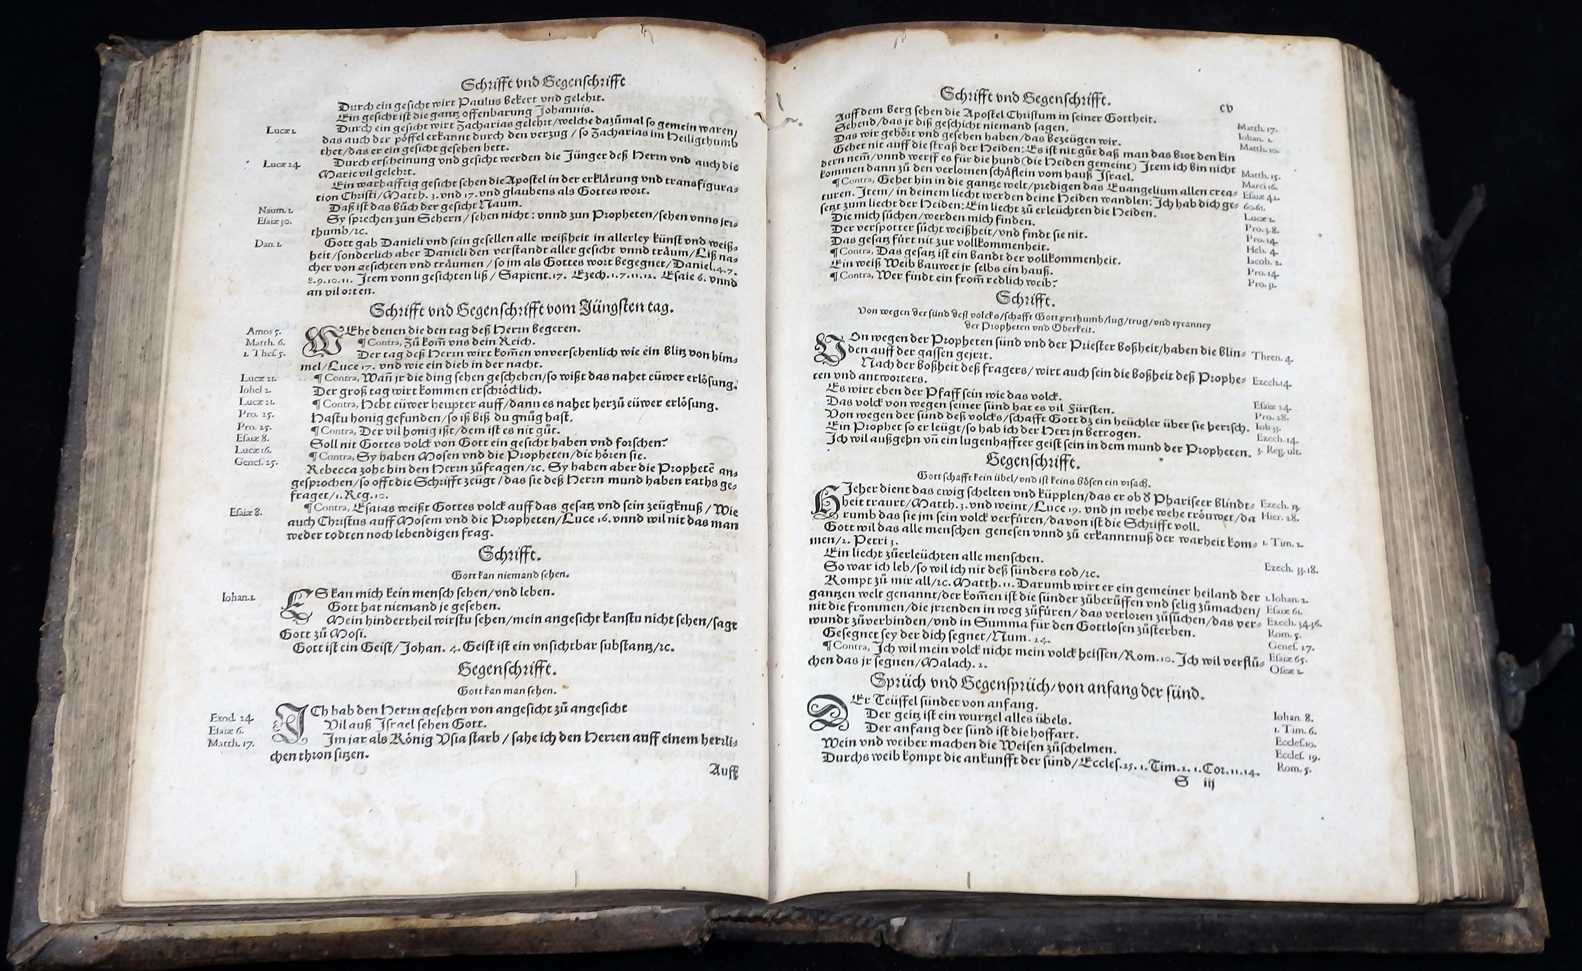 Schrifft vnd Gegenschrifft
Durch ein gesicht wirt Paulus bekert vnd gelehrt.
Ein gesicht ist die gantz offenbarung Johannis.
Lucæ 1. Durch ein gesicht wirt Zacharias gelehrt/welche dazůmal so gemein waren/
das auch der pöfel erkannt durch den verzug/so Zacharias im Heiligthumb
thet/das er ein gesicht gesehen hett.
Lucæ 24. Durch erscheinung vnd gesicht werden die Jünger deß Herrn vnd auch die
Marie vil gelehrt.
Ein warhafftig gesicht sehen die Apostel in der erklärung vnd transfigura-
tion Christi/Matth. 3. vnd 17. vnd glaubens als Gottes wort.
Naum. 1. Daß ist das bůch der gesicht Naum.
Esaiæ 30. Sy sprechen zun Sehern/sehen nicht: vnnd zun Propheten/sehen vnns jrr-
thumb/ꝛc.
Dan. 1. Gott gab Danieli vnd sein gesellen alle weißheit in allerley künst vnd weiß-
heit/sonderlich aber Danieli den verstandt aller gesicht vnnd träum/Liß na-
cher von gesichten vnd träumen/so jm als Gottes wort begegnet/Daniel. 4. 7.
8. 9. 10. 11. Item vonn gesichten liß/Sapient. 17. Ezech. 1. 7. 11. 12. Esaie 6. vnnd
an vil orten.
Schrifft vnd Gegenschrifft vom Jüngsten tag.
Amos 5. WEhe denen die den tag deß Herrn begeren.
Matth. 6. ¶ Contra, Zů kom̃ vns dein Reich.
1. Thes. 5. Der tag deß Herrn wirt kom̃en vnversehenlich wie ein blitz von him-
mel/Luce 17. vnd wie ein dieb in der nacht.
Lucæ 21. ¶ Contra, Wañ jr die ding sehen geschehen/so wißt das nahet eüwer erlösung.
Iohel 2. Der groß tag wirt kommen erschröcklich.
Lucæ 21. ¶ Contra, Hebt eüwer heupter auff/dann es nahet herzů eüwer erlösung.
Pro. 25. Hastu honig gefunden/so iß biß du gnůg hast.
Pro. 25. ¶ Contra, Der vil honig ißt/dem ist es nit gůt.
Esaiæ 8. Soll nit Gottes volck von Gott ein gesicht haben vnd forschen?
Lucæ 16. ¶ Contra, Sy haben Mosen vnd die Propheten/die hören sie.
Genes. 25. Rebecca zohe hin den Herrn zůfragen/ꝛc. Sy haben aber die Prophetẽ an-
gesprochen/so offt die Schrifft zeügt/das sie deß Herrn mund haben raths ge-
fraget/1. Reg. 10.
Esaiæ 8. ¶ Contra, Esaias weißt Gottes volck auff das gesatz vnd sein zeügknuß/Wie
auch Christus auff Mosem vnd die Propheten/Luce 16. vnnd wil nit das man
weder todten noch lebendigen frag.
Schrifft.
Gott kan niemand sehen.
Iohan. 1. ES kan mich kein mensch sehen/vnd leben.
Gott hat niemand je gesehen.
Mein hindertheil wirstu sehen/mein angesicht kanstu nicht sehen/sagt
Gott zů Mosi.
Gott ist ein Geist/Johan. 4. Geist ist ein vnsichtbar substantz/ꝛc.
Gegenschrifft.
Gott kan man sehen.
Exod. 24. ICh hab den Herrn gesehen von angesicht zů angesicht
Esaiæ 6. Vil auß Israel sehen Gott.
Matth. 17. Im jar als König Vsia starb/sahe ich den Herren auff einem herrli-
chen thron sitzen.
Auff
Schrifft vnd Gegenschrifft. cv
Auff dem Berg sehen die Apostel Christum in seiner Gottheit. Matth. 17.
Sehend/das jr diß geschicht niemand sagen. Iohan. 1.
Das wir gehört vnd gesehen haben/das bezeügen wir. Matth. 10.
Gehet nit auff die straß der Heiden: Es ist nit gůt daß man das brot den kin
dern nem̃/vnnd werff es für die hund (die Heiden gemeint) Item ich bin nicht
kommen dann zů den verlornen schäflein vom hauß Israel. Matth. 15.
¶ Contra, Gehet hin in die gantze welt/predigen das Euangelium allen crea- Marci 16.
turen. Item/in deinem liecht werden deine Heiden wandlen: Ich hab dich ge- Esaiæ 42.
setzt zum liecht der Heiden: Ein liecht zů erleüchten die Heiden. 60. 61.
Die mich sůchen/werden mich finden. Lucæ 2.
Der verspotter sůcht weißheit/vnd findt sie nit. Pro. 3. 8.
Das gesatz fürt nit zur vollkommenheit. Pro. 14.
¶ Contra, Das gesatz ist ein bandt der vollkommenheit. Heb. 4.
Ein weiß Weib bauwet jr selbs ein hauß. Iacob. 2.
¶ Contra, Wer findt ein from̃ redlich weib? Pro. 14.
Pro. 31.
Schrifft.
Von wegen der sünd deß volcks/schafft Gott jrrthumb/lug/trug/vnd tyranney
der Propheten vnd Oberkeit.
VOn wegen der Propheten sünd vnd der Priester boßheit/haben die blin- Thren. 4.
den auff der gassen gejrrt.
Nach der boßheit deß fragers/wirt auch sein die boßheit deß Prophe- Ezech. 14.
ten vnd antworters.
Es wirt eben der Pfaff sein wie das volck. Esaiæ 24.
Das volck von wegen seiner sünd hat es vil Fürsten. Pro. 28.
Von wegen der sünd deß volcks/schafft Gott dz ein heüchler über sie hersch. Iob 33.
Ein Prophet so er leügt/so hab ich der Herr jn betrogen. Ezech. 14.
Ich wil außgehn vñ ein lugenhaffter geist sein in dem mund der Propheten. 3. Reg. ult.
Gegenschrifft.
Gott schafft kein übel/vnd ist keins bösen ein vrsach.
HIeher dient das ewig schelten vnd küpplen/das er ob ð Phariseer blindt- Ezech. 13.
heit traurt/Matth. 3. vnd weint/Luce 19. vnd jn wehe wehe tröuwet/da Hier. 28.
rumb das sie jm sein volck verfüren/davon ist die Schrifft voll.
Gott wil das alle menschen genesen vnnd zů erkanntnuß der warheit kom- 1. Tim. 2.
men/2. Petri 3.
Ein liecht zůerleüchten alle menschen.
So war ich leb/so wil ich nit deß sünders tod/ꝛc. Ezech. 33. 18.
Kompt zů mir all/ꝛc. Matth. 11. Darumb wirt er ein gemeiner heiland der 1. Iohan. 2.
gantzen welt genannt/der kom̃en ist die sünder züberüffen vnd selig zůmachen/ Esaiæ 61.
nit die frommen/die jrrenden in weg zůfüren/das verloren zůsůchen/das ver- Ezech. 34. 36.
wundt zůverbinden/vnd in Summa für den Gottlosen zůsterben. Rom. 5.
Gesegnet sey der dich segnet/Num. 24. Genes. 27.
¶ Contra, Ich wil mein volck nicht mein volck heissen/Rom. 10. Ich wil verflů- Esaiæ 65.
chen das jr segnen/Malach. 2. Oseæ 2.
Sprüch vnd Gegensprüch/von anfang der sünd.
DEr Teüffel sündet von anfang. Iohan. 8.
Der geitz ist ein wurtzel alles übels. 1. Tim. 6.
Der anfang der sünd ist die hoffart. Eccles. 10.
Wein vnd weiber machen die Weisen zůschelmen. Eccles. 19.
Durchs weib kompt die ankunfft der sünd/Eccles. 25. 1. Tim. 2. 1. Cor. 11. 14. Rom. 5.
S iij